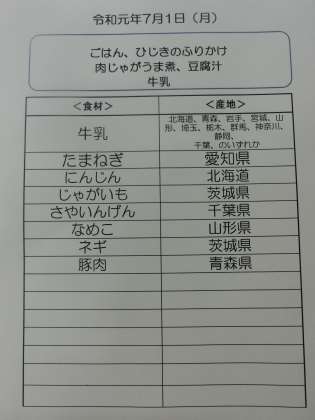 令和元年7月1日（月）
ごはん、ひじきのふりかけ
肉じゃがうま煮、豆腐汁
牛乳
＜食材＞ ＜産地＞
牛乳 北海道、青森、岩手、宮城、山
形、埼玉、栃木、群馬、神奈川、
静岡、
千葉、のいずれか
たまねぎ 愛知県
にんじん 北海道
じゃがいも 茨城県
さやいんげん 千葉県
なめこ 山形県
ネギ 茨城県
豚肉 青森県